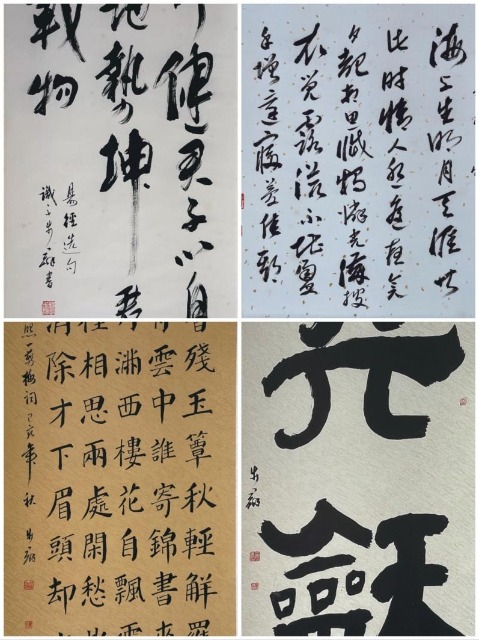 行健君子以自
地勢坤君
載物
易經造句
海上生明月天涯共
此時情人怨遙夜竟
夕起相思滅燭憐光滿披
衣覺露滋不堪盈
手贈還寢夢佳期
香殘玉簟秋輕解羅
雲中誰寄錦書來
月滿西樓花自飄零
種相思兩處閑愁此
消除才下眉頭却
照一剪梅詞己亥年秋
龢